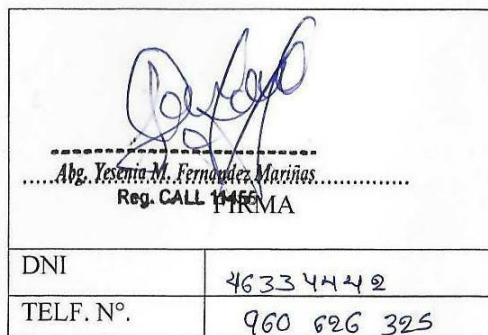 Abg. Yesenia M. Fernandez Mariñas
Reg. CALL
FIRMA
DNI 46334442
TELF. N°. 960 626 325